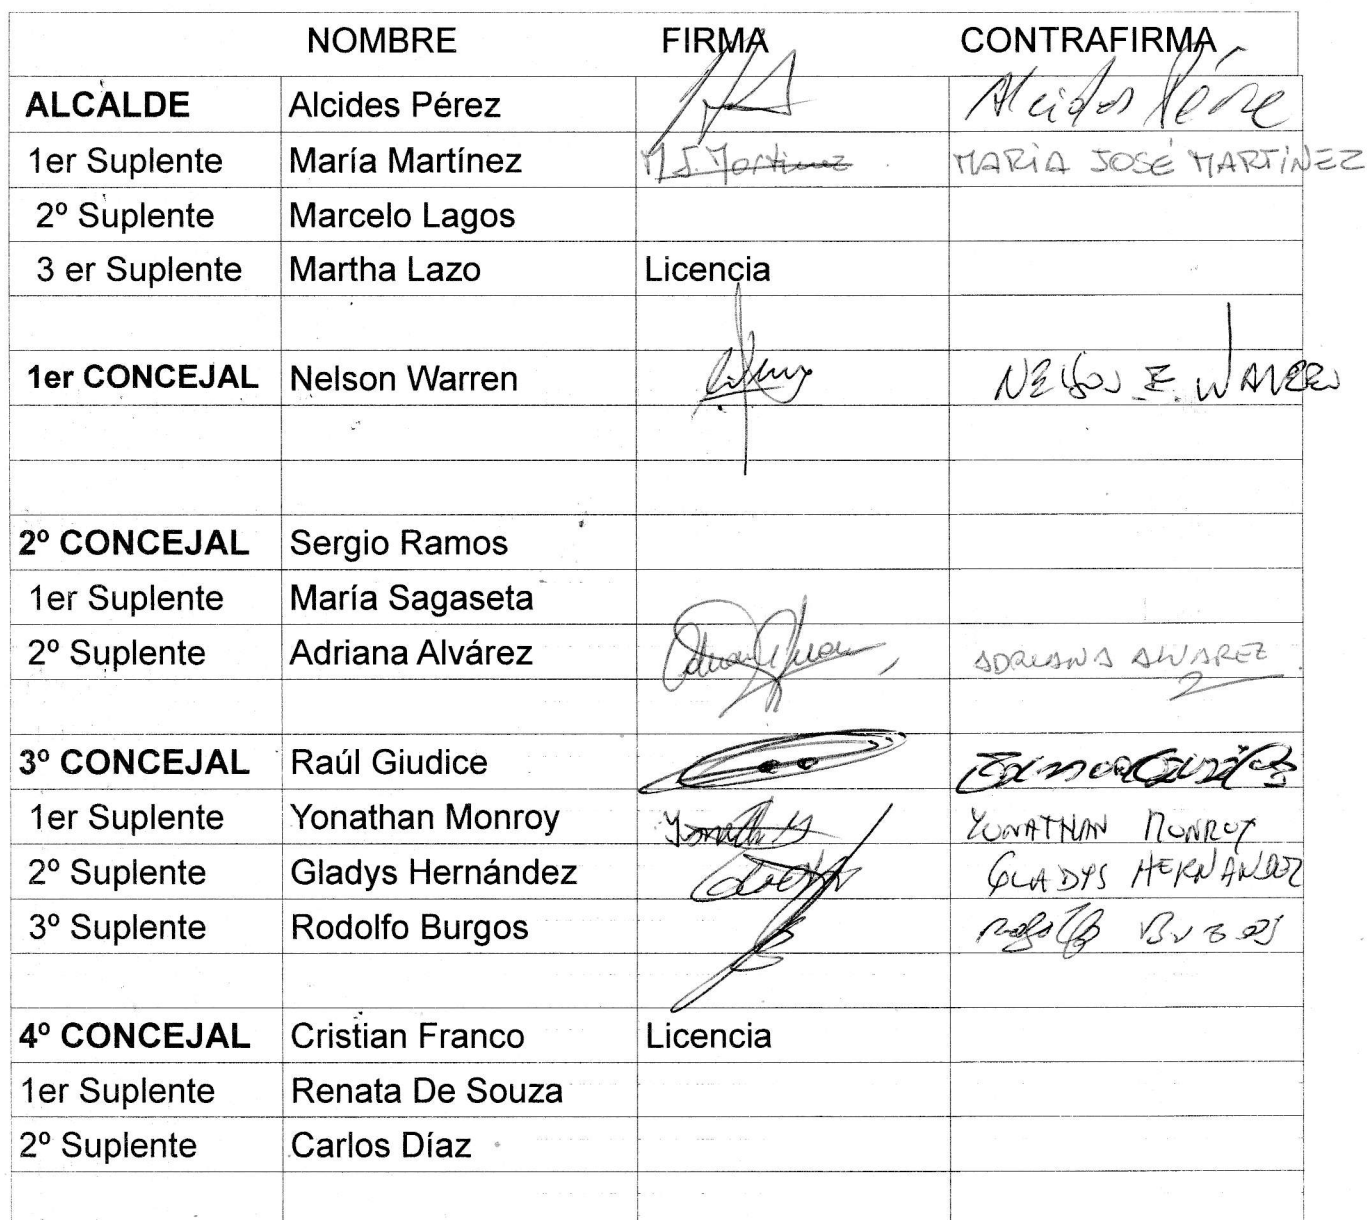 NOMBRE FIRMA CONTRAFIRMA
ALCALDE Alcides Pérez Alcides Pérez
1er Suplente María Martínez M J. Martinez MARÍA JOSÉ MARTÍNEZ
2º Suplente Marcelo Lagos
3 er Suplente Martha Lazo Licencia
1er CONCEJAL Nelson Warren NELSON E. WARREN
2º CONCEJAL Sergio Ramos
1er Suplente María Sagaseta
2º Suplente Adriana Alvárez ADRIANA ALVAREZ
3º CONCEJAL Raúl Giudice
1er Suplente Yonathan Monroy YONATHAN MONROY
2º Suplente Gladys Hernández GLADYS HERNÁNDEZ
3º Suplente Rodolfo Burgos Rodolfo
4º CONCEJAL Cristian Franco Licencia
1er Suplente Renata De Souza
2º Suplente Carlos Díaz